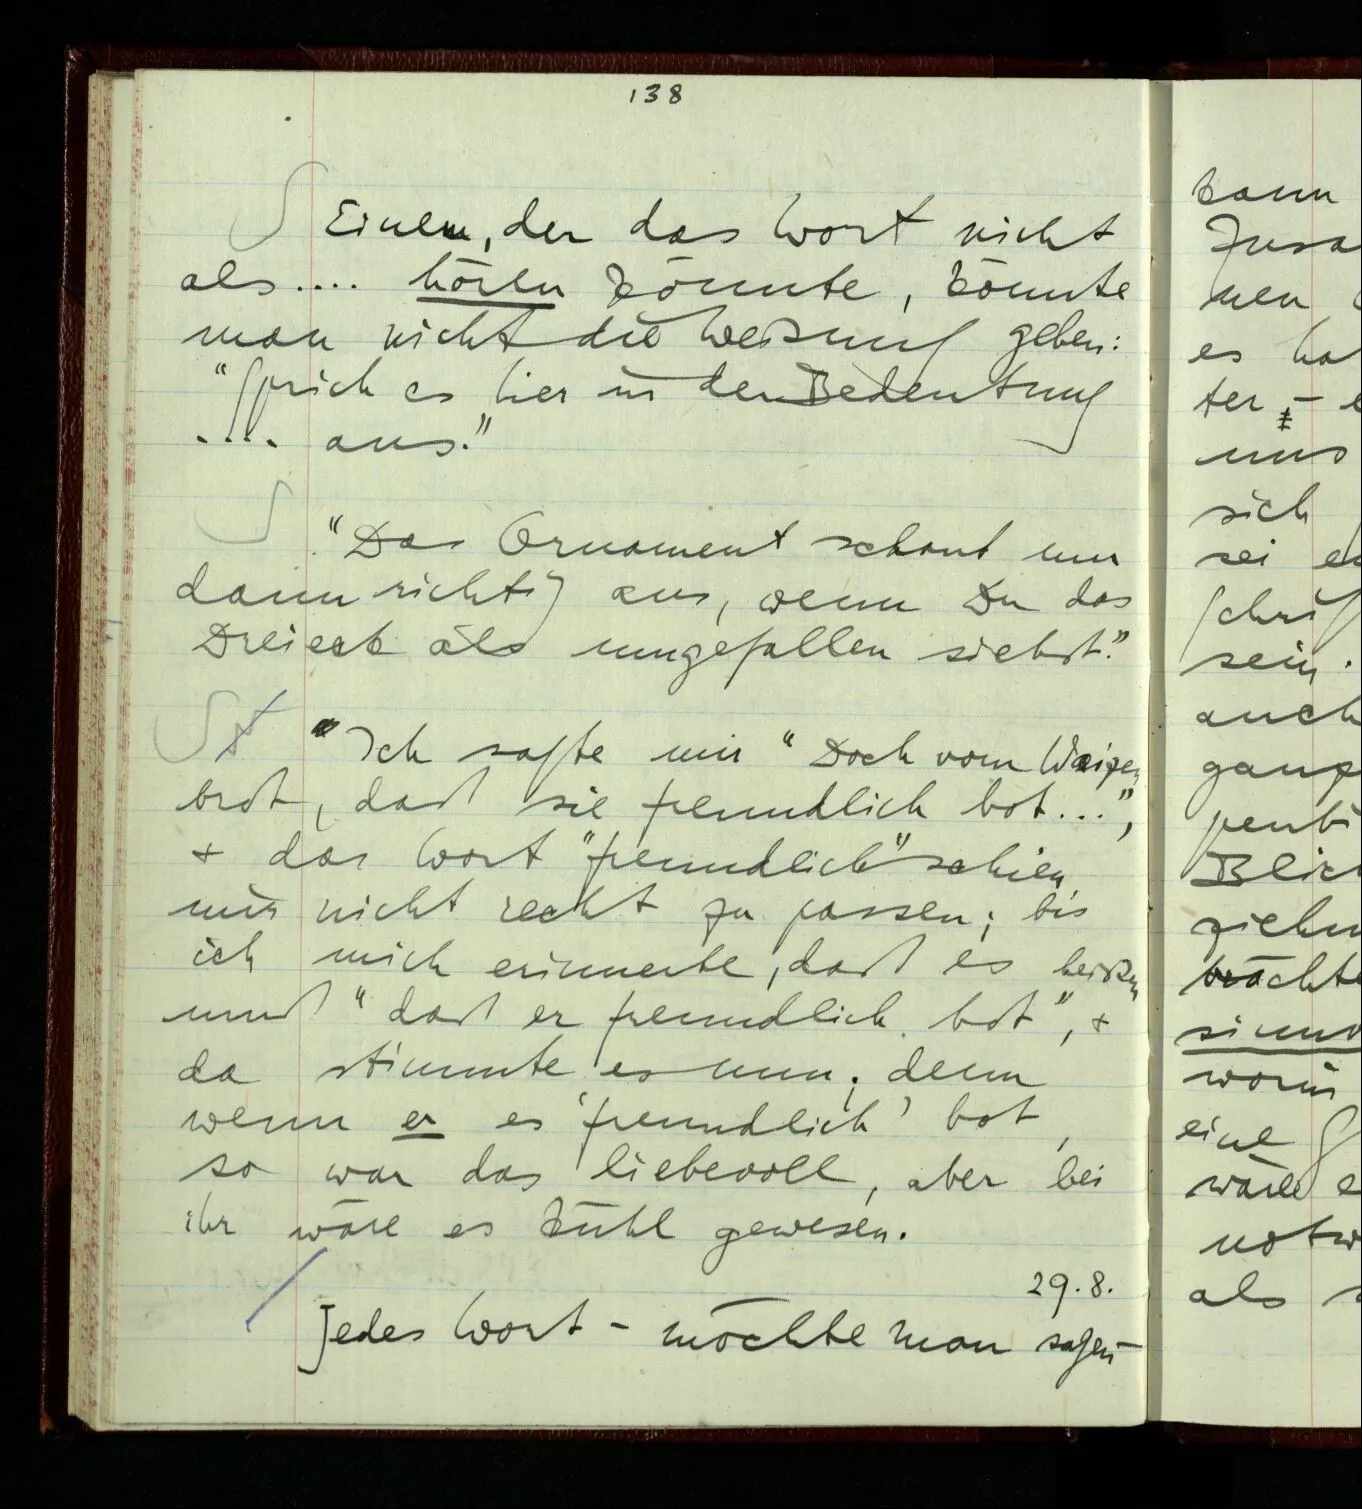 138
Einem, der das Wort nicht
als.... hören könnte, könnte
man nicht die Weisung geben:
"Sprich es hier in der Bedeutung
.... aus."
"Das Ornament schaut nur
dann richtig aus, wenn Du das
Dreieck als umgefallen siehst."
"Ich sagte mir "Doch vom Waizen
brot, das sie freundlich bot...",
& das Wort "freundlich" schien
mir nicht recht zu passen; bis
ich mich erinnerte, daß es heißen
muß "das er freundlich bot", &
da stimmte es nun; denn
wenn er es 'freundlich' bot,
so war das liebevoll, aber bei
ihr wäre es kühl gewesen.
29.8.
Jedes Wort – möchte man sagen –
kann
Zusa
nen
es ha
ter, –
uns
sich
sei es
schrif
sein.
auch
ganz
Blic
ziehn
brächte
worin
eine
wäre e
notw
als